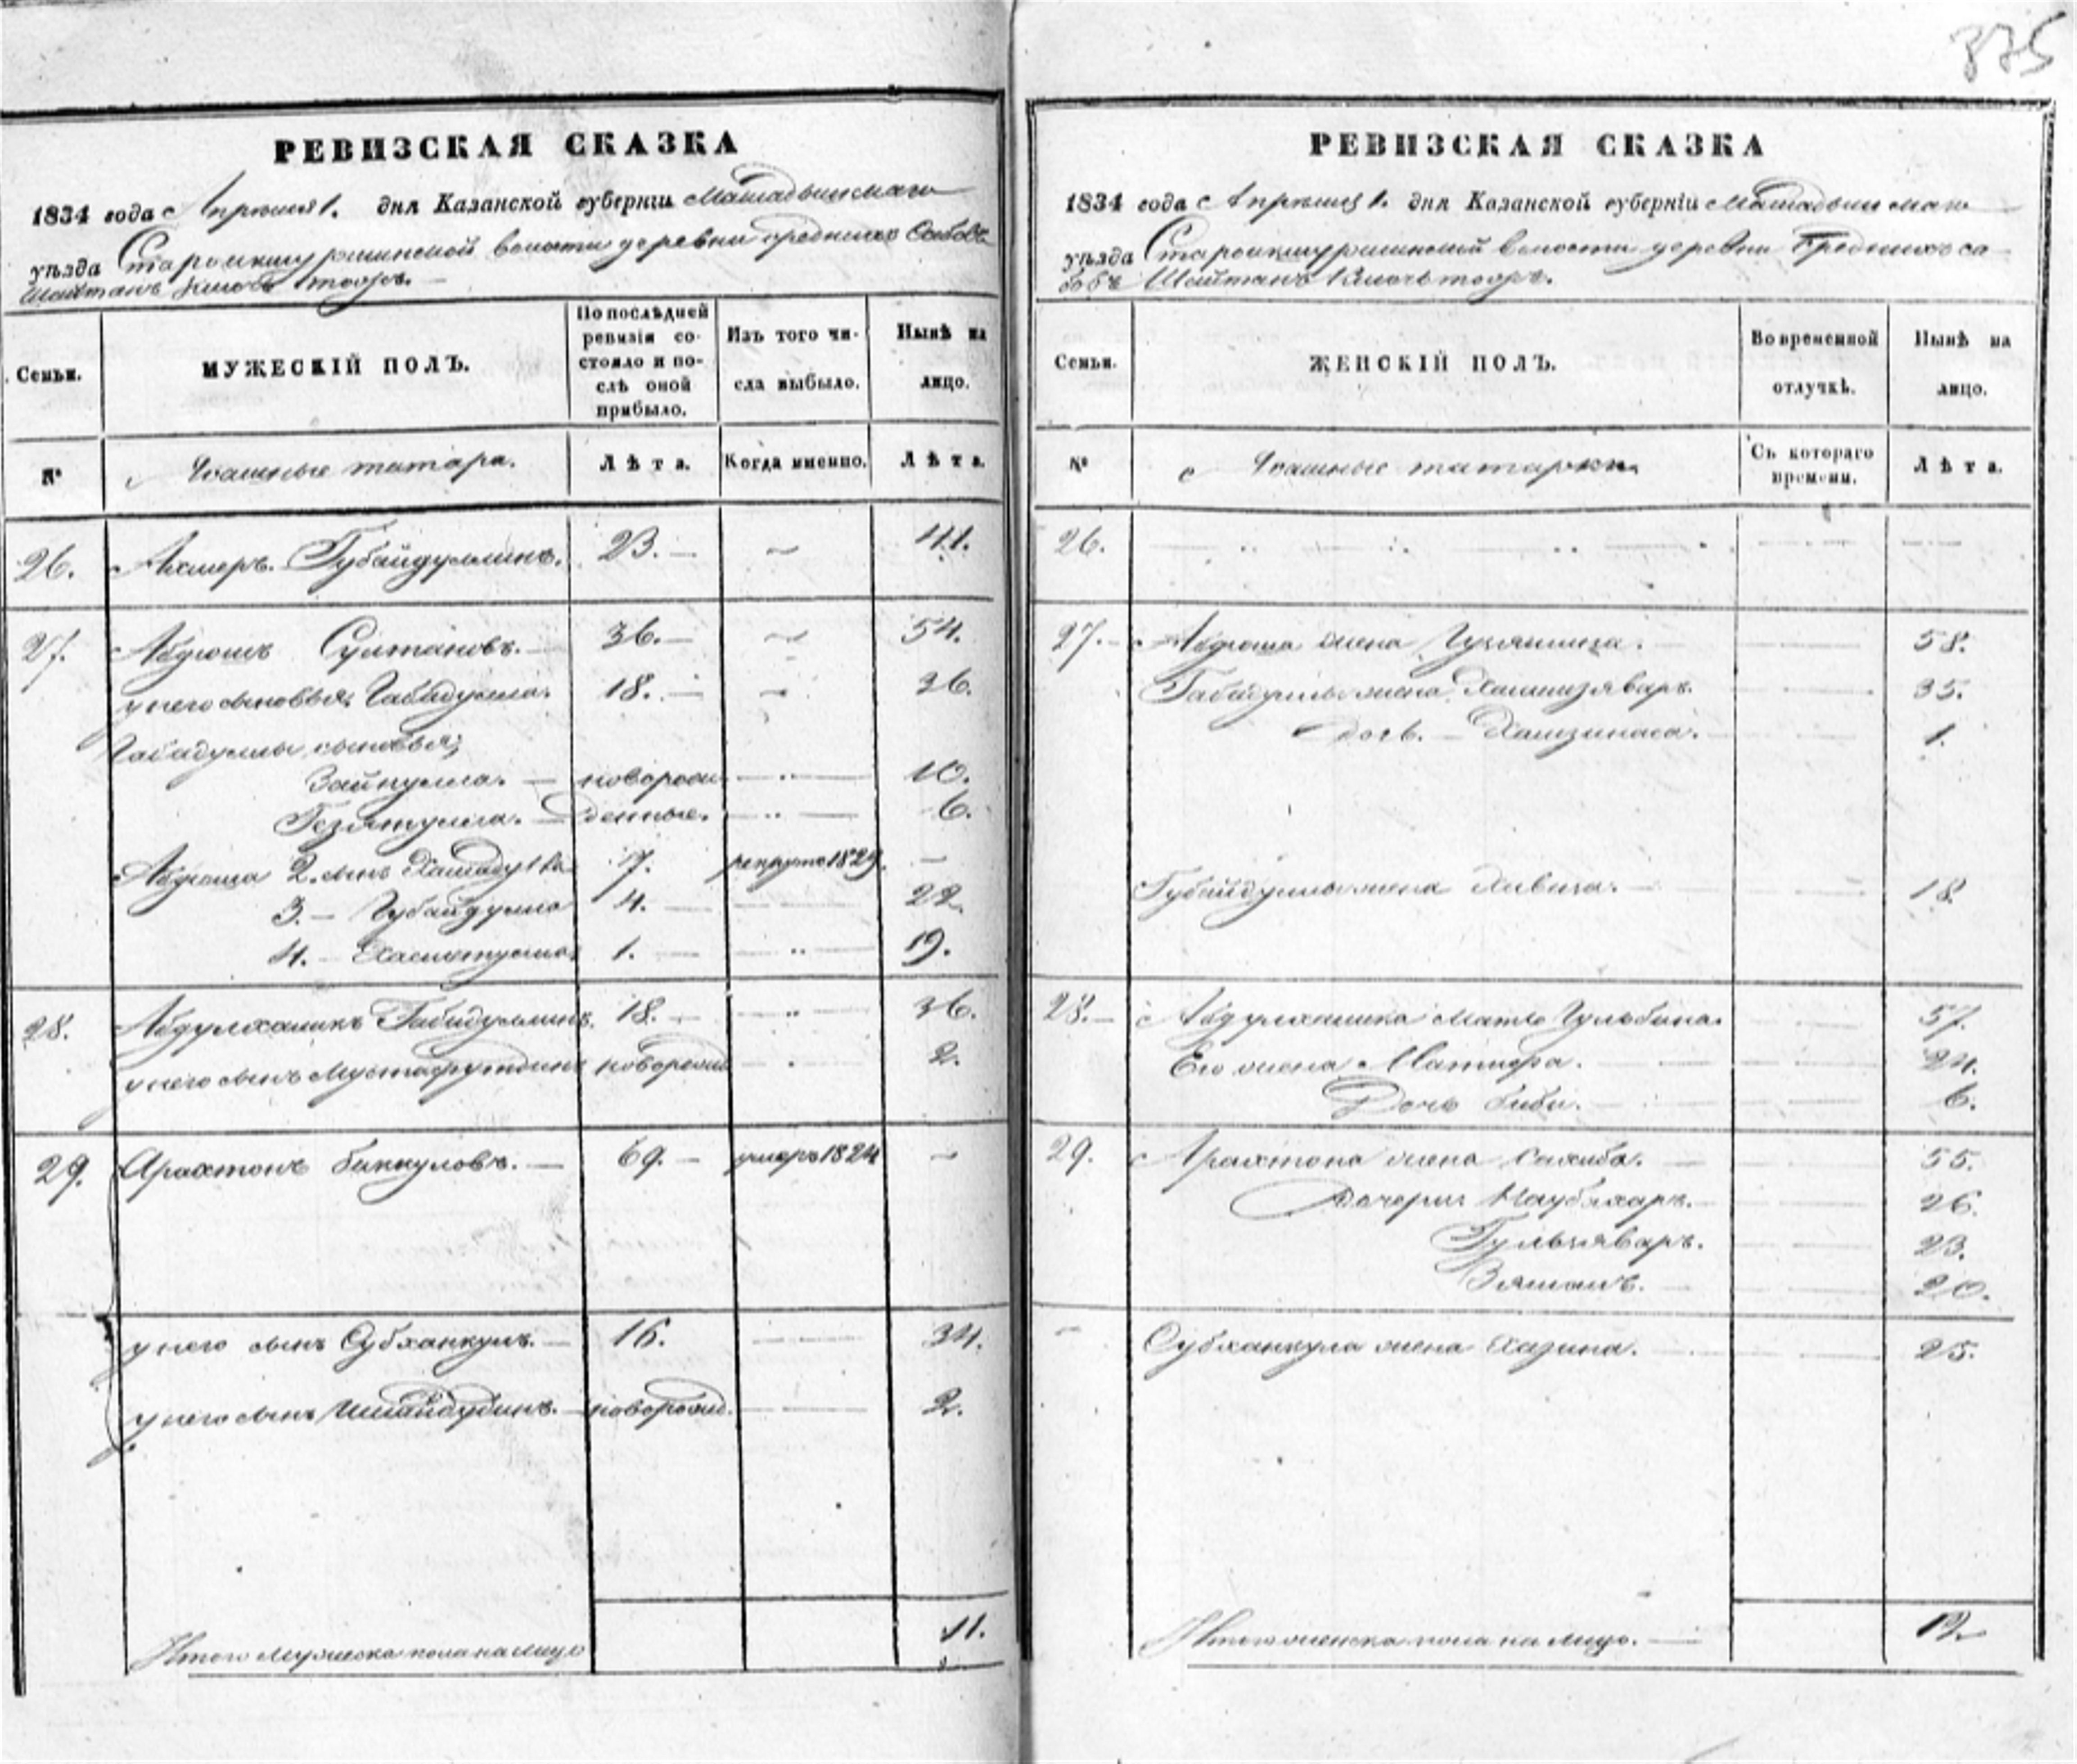 375
РЕВИЗСКАЯ СКАЗКА
1834 года Апреля 1. дня Казанской губерніи Мамадышскаго
уѣзда Старо волости деревни Среднихъ Сабовъ
Шайтанъ Ключь тожъ.
Семьи. МУЖЕСКІЙ ПОЛЪ. По послѣдней ревизіи состояло и послѣ оной прибыло. Изъ того числа выбыло. Нынѣ на лицо.
№ Ясашные татара. Лѣта. Когда именно. Лѣта.
26. Ахмеръ Губайдуллинъ. 23. 41.
27. Абдюшъ Султановъ. 36. 54.
у него сыновья Габидулла. 18. 36.
Габидуллы сыновья;
Зайнулла. новорож 10.
Гезятулла. денные. 6.
Абдюша 2. сынъ 7. рекрутъ 1829.
3. Губайдулла 4. 22
4. 1. 19.
28. Абдулхаликъ Габидуллинъ. 18. 36.
у него сынъ новорожд 2.
29. Арахтонъ Биккуловъ. 69. умеръ 1824
у него сынъ Субханкулъ. 16. 34.
у него сынъ новорожд. 2.
Итого Мужеска пола на лицо 11.
РЕВИЗСКАЯ СКАЗКА
1834 года Апреля 1. дня Казанской губерніи Мамадышскаго
уѣзда Старо волости деревни Среднихъ Са-
бовъ Шайтанъ Ключь тожъ.
Семьи. ЖЕНСКІЙ ПОЛЪ. Во временной отлучкѣ. Нынѣ на лицо.
№ Ясашные татарки. Съ котораго времени. Лѣта.
26.
27. Абдюша жена 58.
Габидуллы жена 35.
дочь. 1.
Губайдуллы жена 18.
28. Абдулхалика мать Гульбина. 57.
Его жена 24.
Дочь Биби. 6.
29. Арахтона жена Сахиба. 55.
Дочери 26.
Гульзяваръ. 23.
20.
Субханкула жена Хазина. 25.
Итого женска пола на лицо. 12